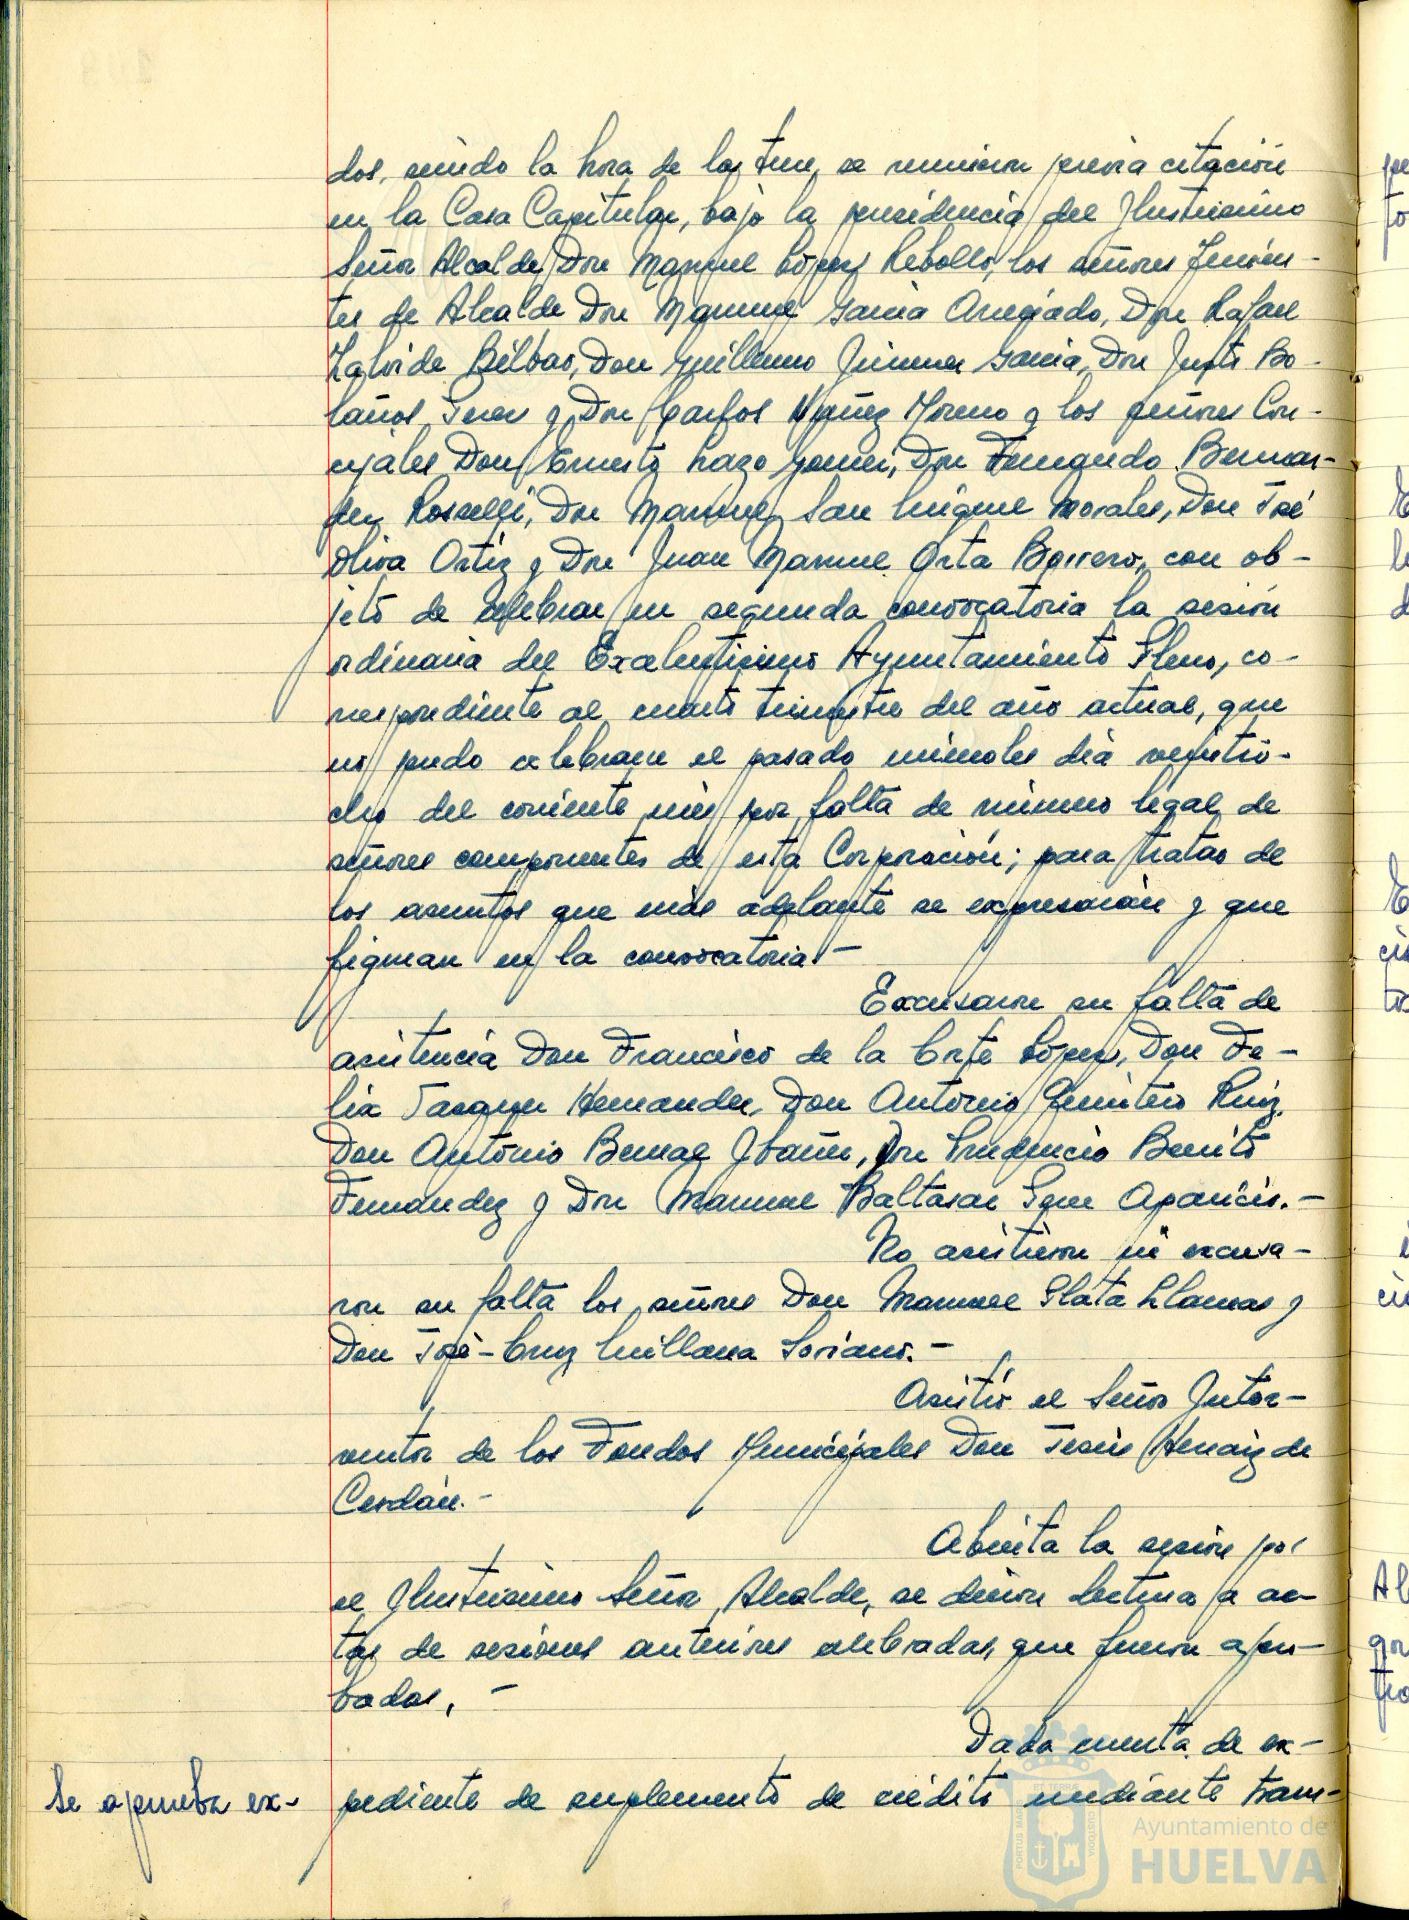 dos, siendo la hora de las trece, se reunieron previa citación
en la Casa Capitular, bajo la presidencia del Ilustrisimo
Señor Alcalde, Don Manuel López Rebollo, los señores Tenien-
tes de Alcalde Don Manuel Garcia Don Rafael
Zalvide Bilbao, Don Guillermo Jimenez Garcia, Don Justo Bo-
laños Perez y Don Carlos Nuñez Moreno y los señores Con-
cejales Don Ernesto Lazo Gomez, Don Fernando Bermu-
dez Rosselli, Don Manuel San Miguel Morales, Don José
Oliva Ortiz y Don Juan Manuel Orta Borrero, con ob-
jeto de celebrar en segunda convocatoria la sesión
ordinaria del Excelentisimo Ayuntamiento Pleno, co-
rrespondiente al cuarto trimestre del año actual, que
no pudo celebrarse el pasado miercoles dia veintio-
cho del corriente mes por falta de número legal de
señores componentes de esta Corporación; para tratar de
los asuntos que más adelante se expresarán y que
figuran en la convocatoria.-
Excusaron su falta de
asistencia Don Francisco de la Corte López, Don Fe-
lix Hernandez, Don Antonio Quintero Ruiz,
Don Antonio Bernal Ibañez, Don Prudencio Benito
Fernandez y Don Manuel Baltasar Aparicio.-
No asistieron ni excusa-
ron su falta los señores Don Manuel Plata Llamas y
Don José-Cruz Millana Soriano.-
Asistió el Señor Inter-
ventor de los Fondos Municipales Don Jesús Hernaiz de
Cerdán.-
Abierta la sesión por
el Ilustrisimo Señor Alcalde, se dieron lectura a ac-
tas de sesiones anteriores celebradas, que fueron apro-
badas.-
Dada cuenta de ex-
Se aprueba ex-
pediente de suplemento de crédito mediante trans-
Ayuntamiento de
HUELVA